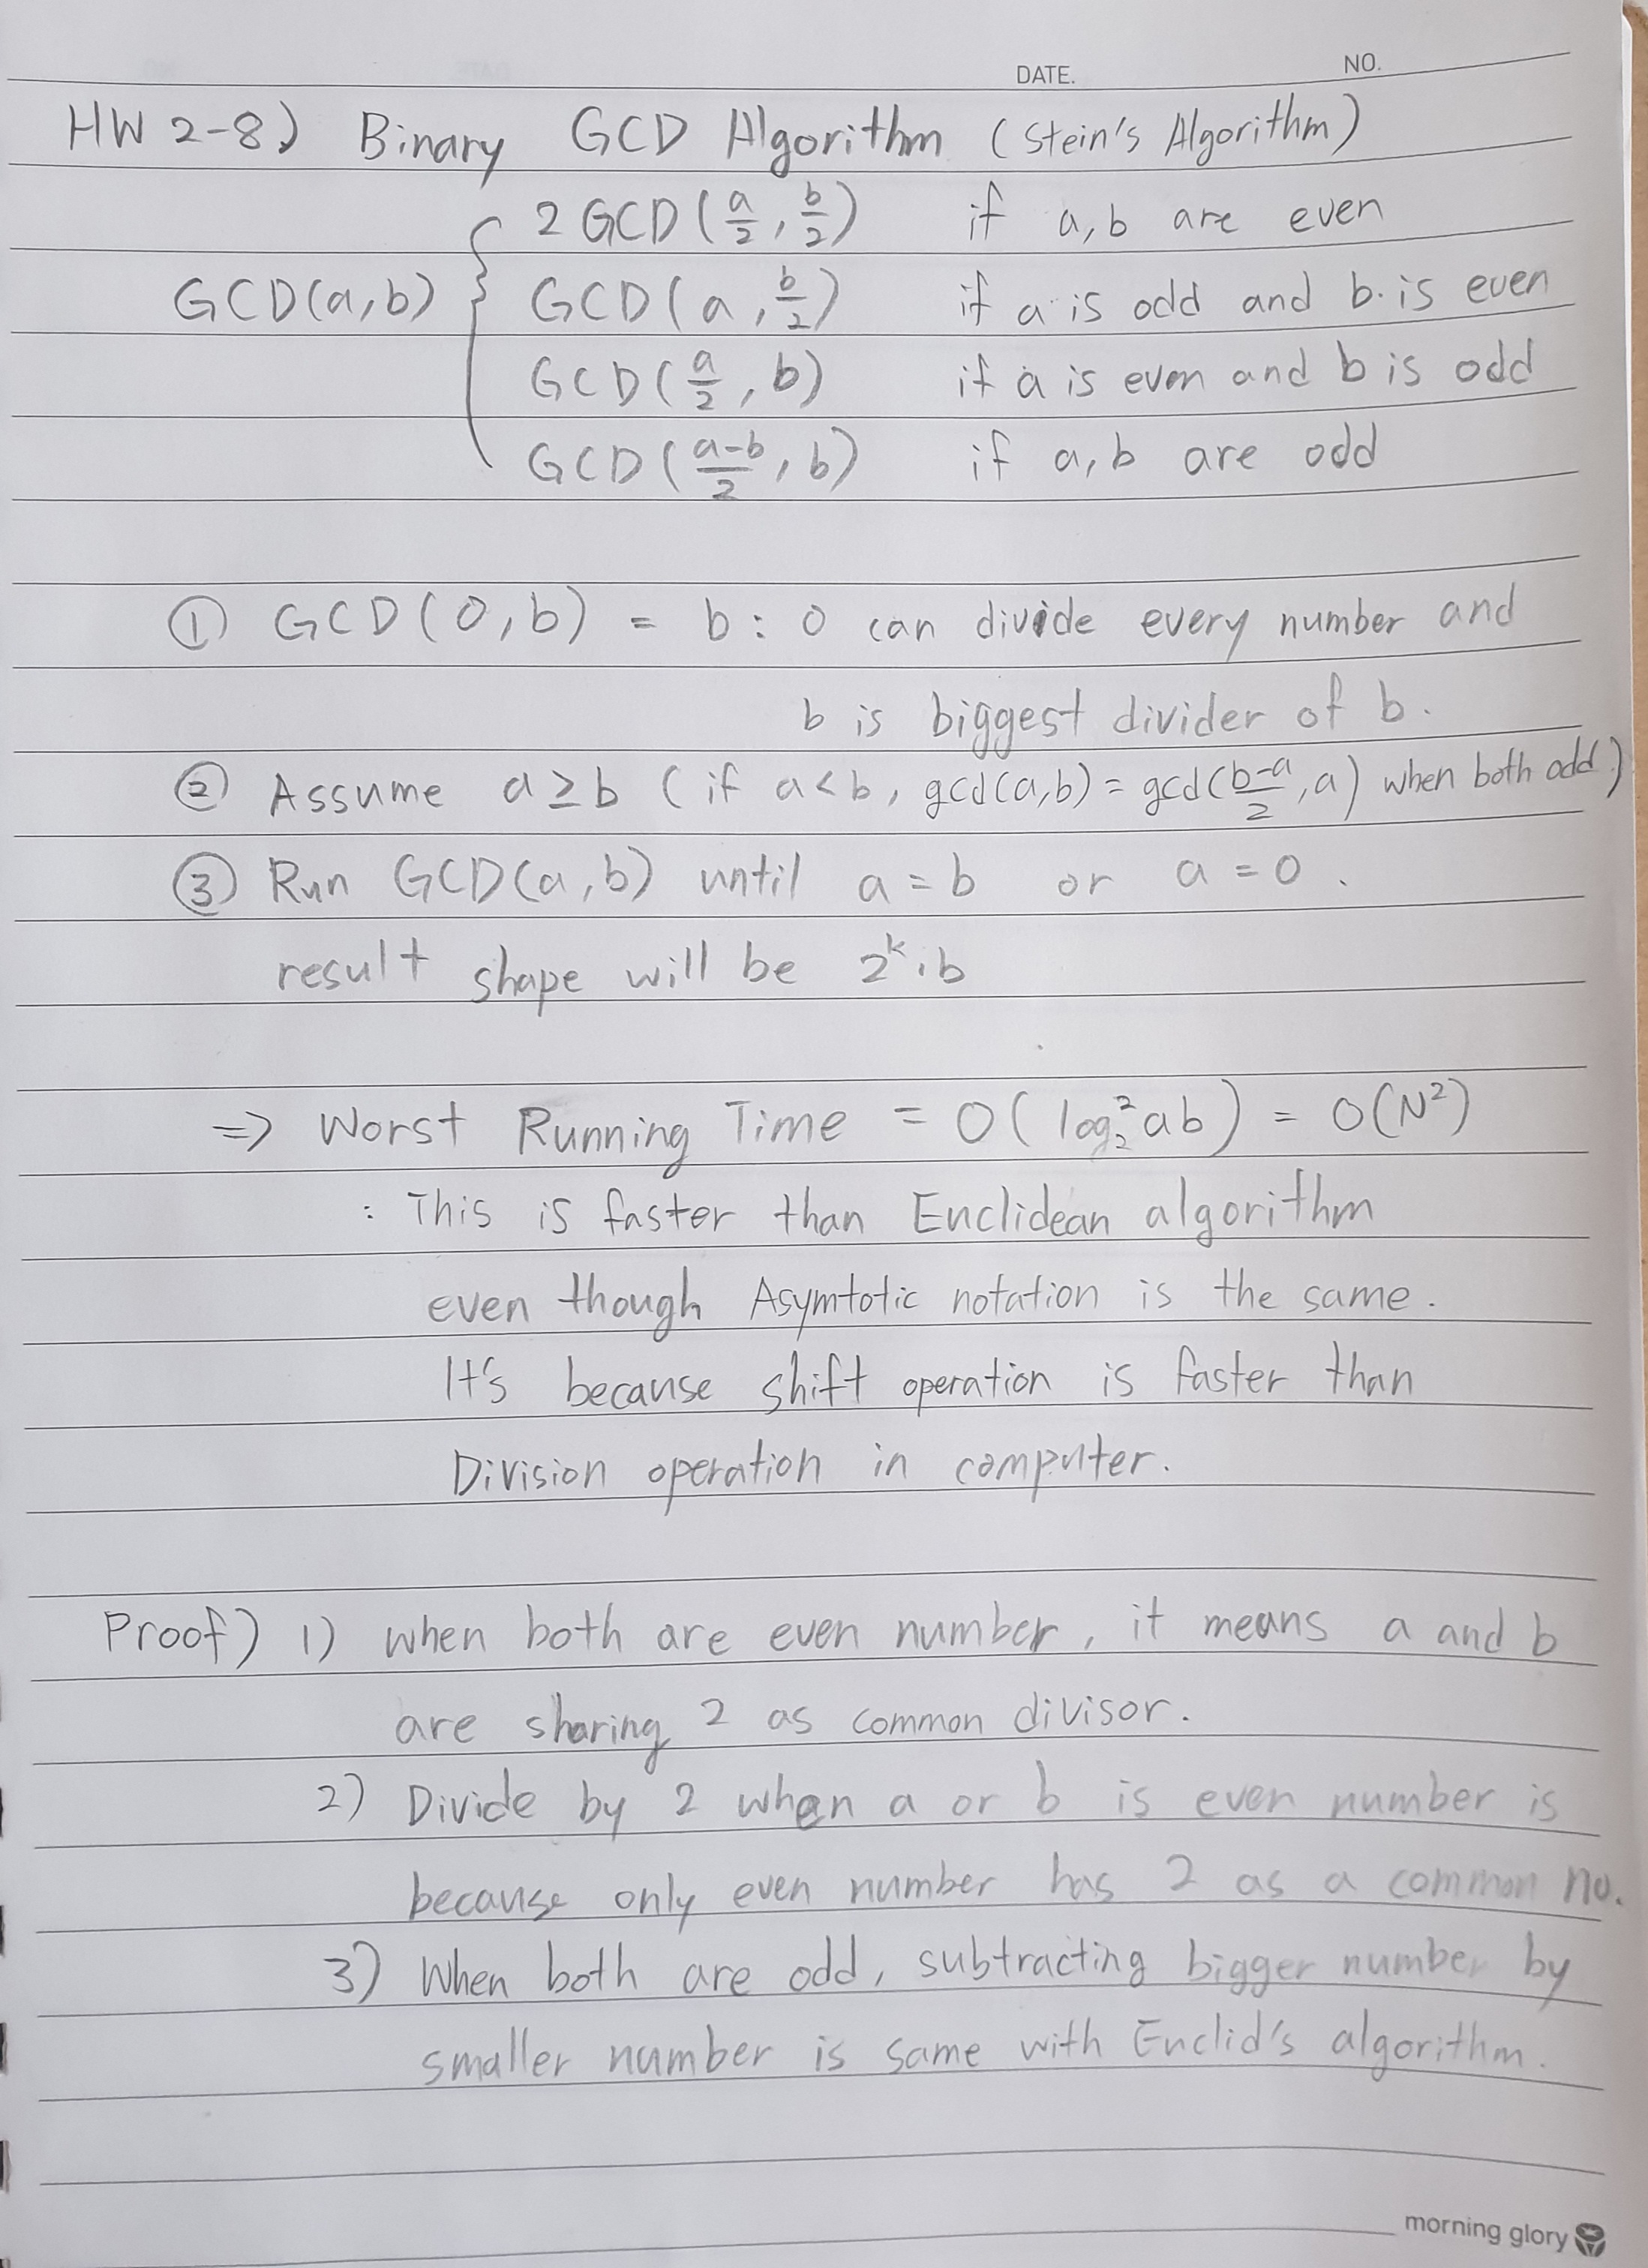 DATE. NO.
HW 2-8) Binary GCD Algorithm (Stein's Algorithm)
2 GCD(a/2, b/2) if a, b are even
GCD(a,b) { GCD(a, b/2) if a is odd and b is even
GCD(a/2, b) if a is even and b is odd
GCD((a-b)/2, b) if a, b are odd
① GCD(0,b) = b : 0 can divide every number and
b is biggest divider of b.
② Assume a≥b (if a<b, gcd(a,b) = gcd((b-a)/2, a) when both odd)
③ Run GCD(a,b) until a=b or a=0.
result shape will be 2ᵏ·b
⇒ Worst Running Time = O(log₂²ab) = O(N²)
: This is faster than Euclidean algorithm
even though Asymtotic notation is the same.
It's because shift operation is faster than
Division operation in computer.
Proof) 1) When both are even number, it means a and b
are sharing 2 as common divisor.
2) Divide by 2 when a or b is even number is
because only even number has 2 as a common no.
3) When both are odd, subtracting bigger number by
smaller number is same with Euclid's algorithm.
morning glory